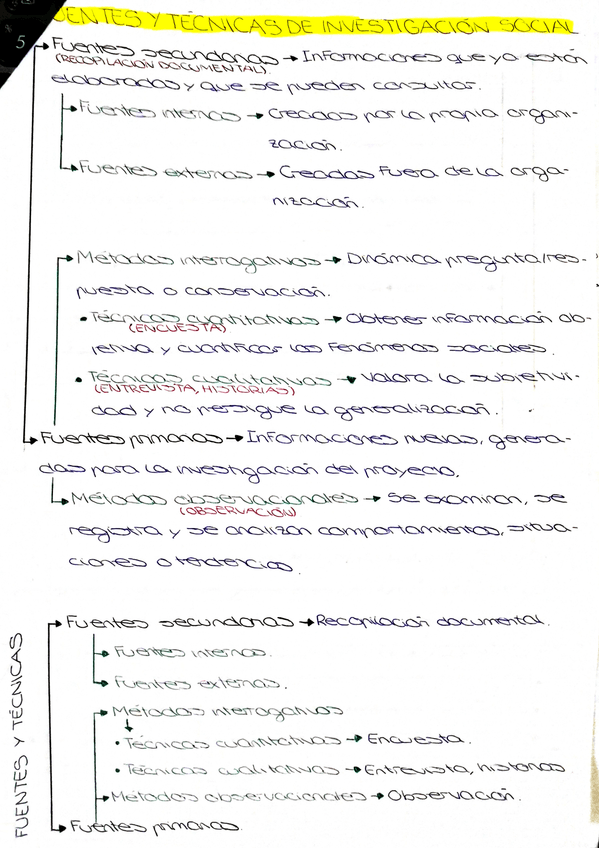 FUENTES Y TÉCNICAS DE INVESTIGACIÓN SOCIAL
5
Fuentes secundarias → Informaciones que ya están
(RECOPILACIÓN DOCUMENTAL).
elaboradas y que se pueden consultar.
Fuentes internas → Creadas por la propia organi-
zación.
Fuentes externas → Creadas fuera de la orga-
nización.
Métodos interrogativos → Dinámica pregunta/res-
puesta o conservación.
• Técnicas cuantitativas → Obtener información ob-
(ENCUESTA)
jetiva y cuantificar los fenómenos sociales.
• Técnicas cualitativas → Valora la subjetivi-
(ENTREVISTA, HISTORIAS)
dad y no persigue la generalización.
Fuentes primarias → Informaciones nuevas, genera-
das para la investigación del proyecto.
Métodos observacionales → Se examinan, se
(OBSERVACIÓN)
registra y se analizan comportamientos, situa-
ciones o tendencias.
FUENTES Y TÉCNICAS
Fuentes secundarias → Recopilación documental.
Fuentes internas.
Fuentes externas.
Métodos interrogativos
• Técnicas cuantitativas → Encuesta.
• Técnicas cualitativas → Entrevista, historias
Métodos observacionales → Observación.
Fuentes primarias.